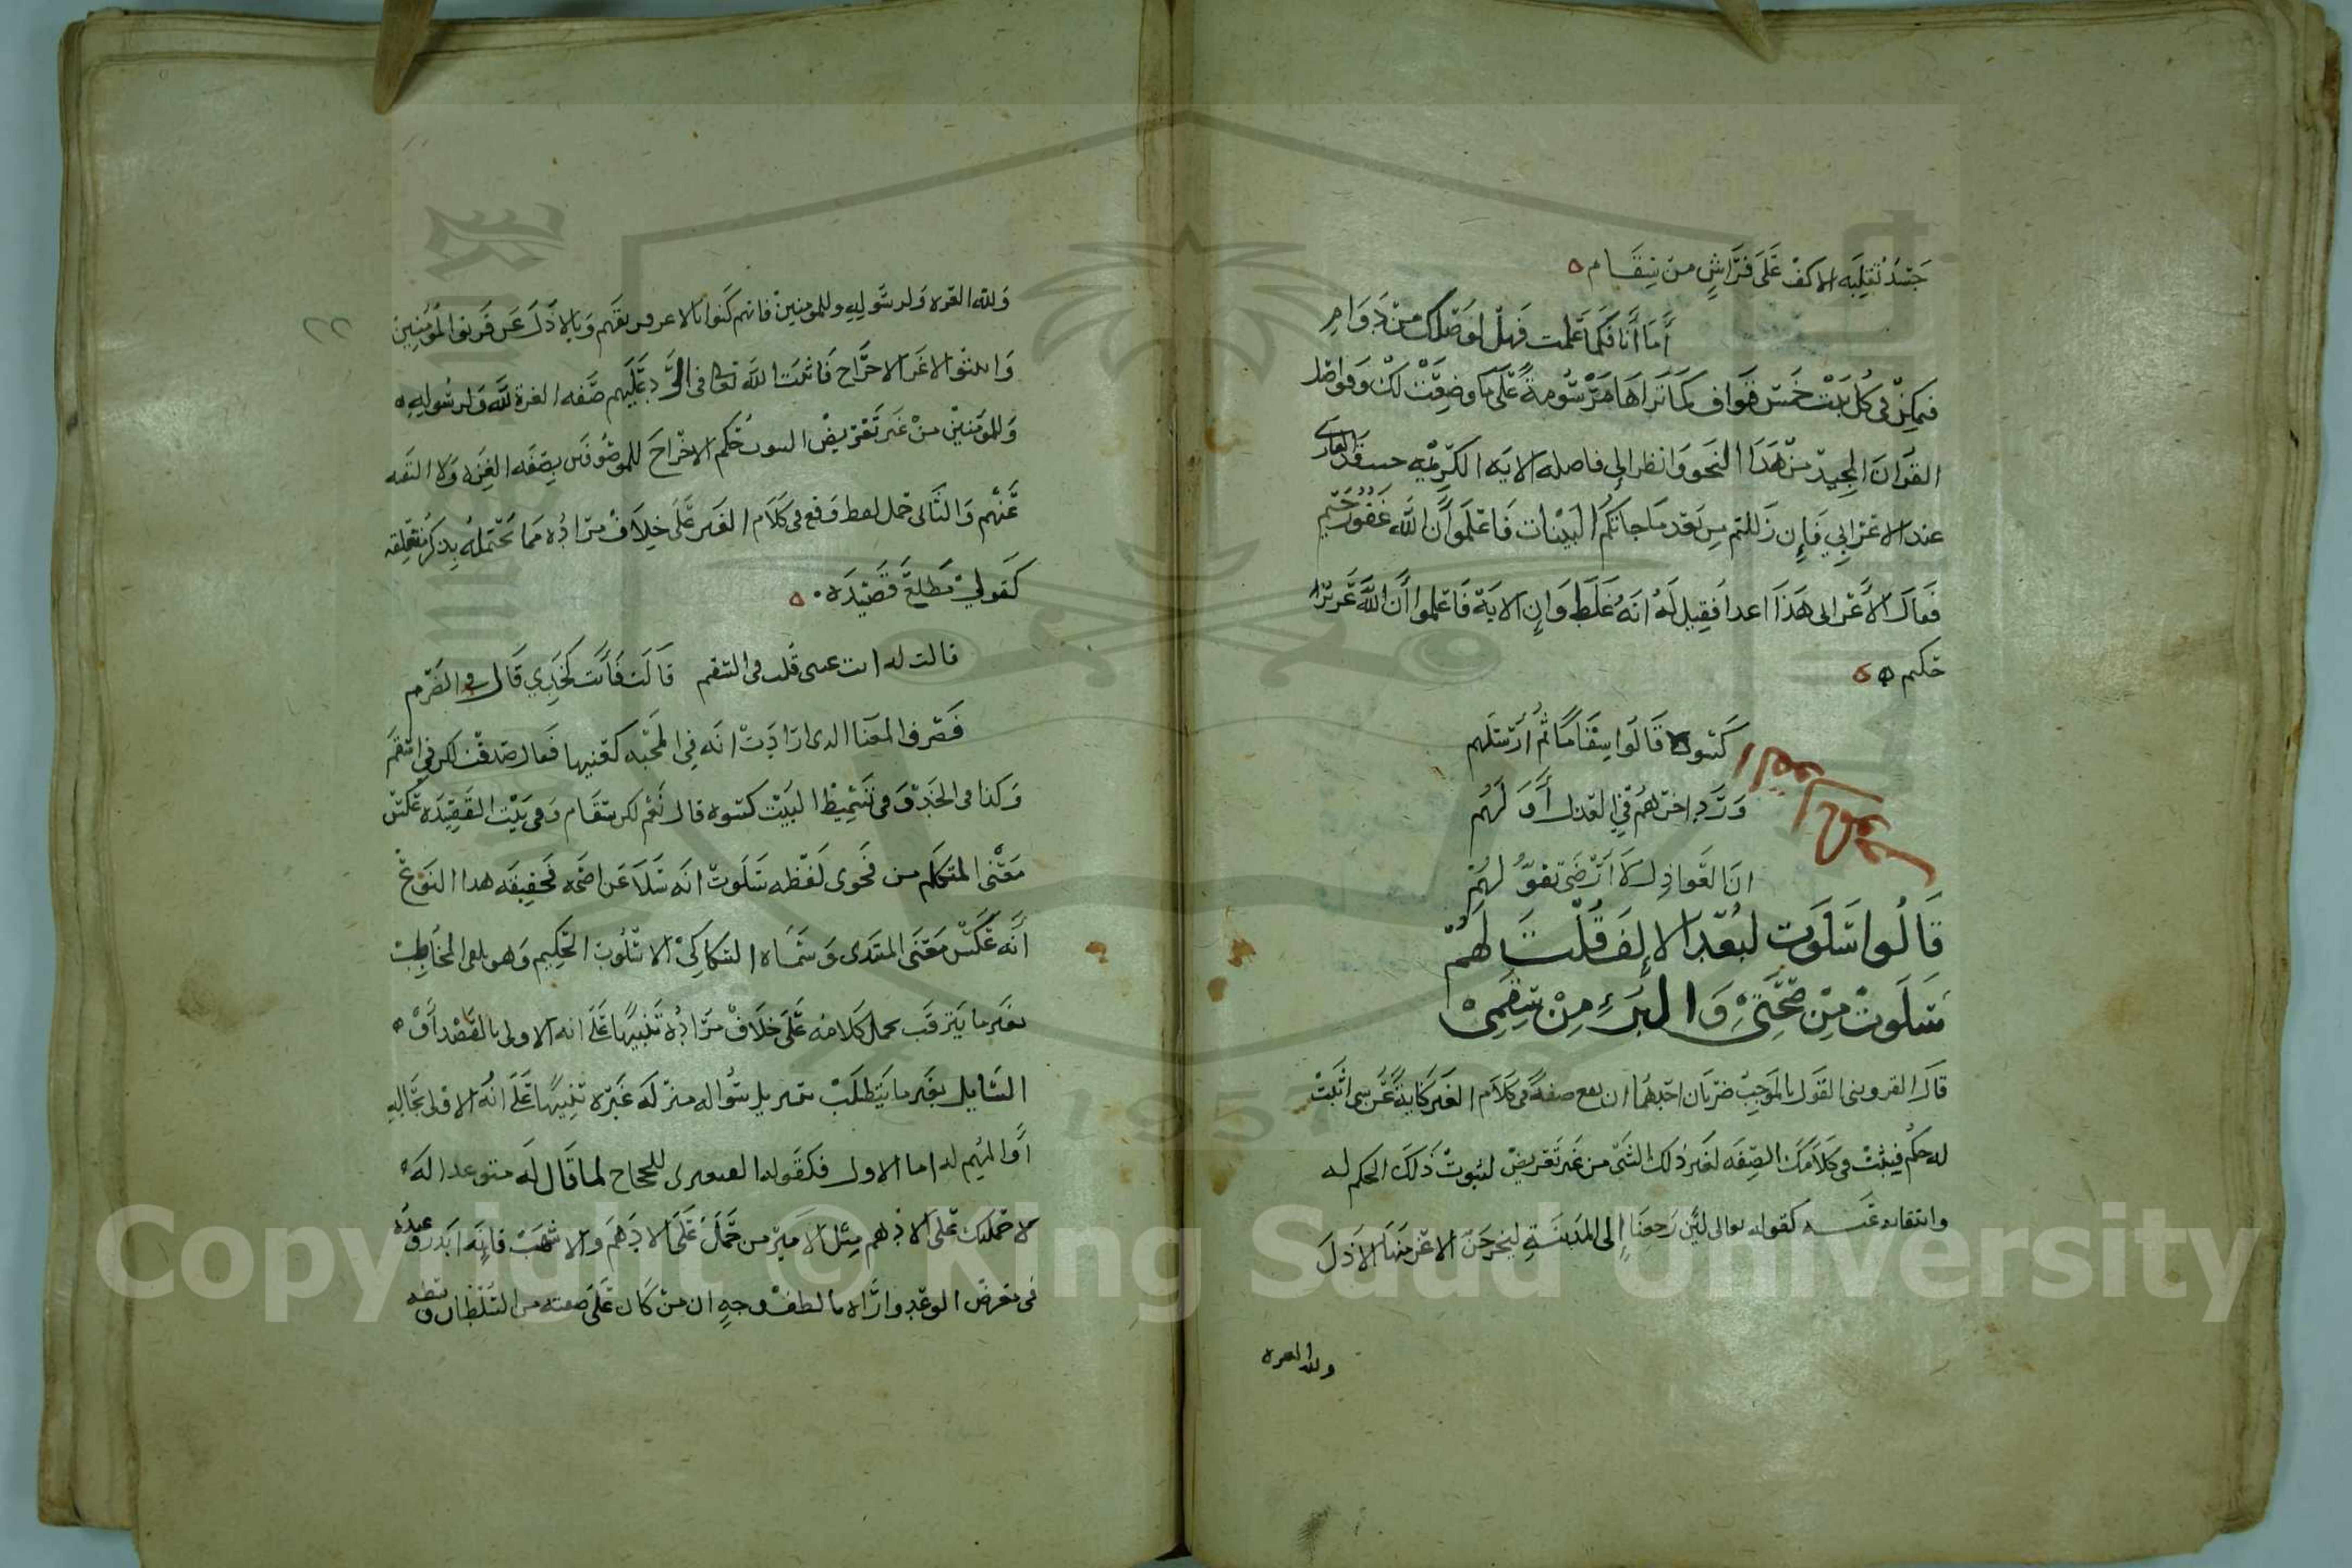 جسد تقلبه الاكف على فراش من سقام
أما أنا فكما علمت فهل لوصلك من دوام
فيمكن في كل بيت خمس قواف كما تراها مرسومة على ما وضعت لك وفواصل
القرآن المجيد من هذا النحو وانظر إلى فاصله الايه الكريمه حيث قرأ القارى
عند الاعرابي فإن زللتم من بعد ما جاتكم البينات فاعلموا أن الله غفور رحيم
فقال الأعرابى هذا فقيل له انه غلط وإن الاية فاعلموا أن الله عزيز
حكيم
القول بالموجب
كسوه قالوا سقاما ثم أرسلهم
ورد اخرهم في العذل أولهم
ان العواذل لا أرضى تقولهم
قالوا سلوت لبعد الإلف قلت لهم
سلوت من صحتي والبرء من سقمي
قال القزوينى القول بالموجب ضربان احدهما ان يقع صفة فى كلام الغير كناية عن شى اثبت
له حكم فيثبت فى كلامك الصفه لغير ذلك الشي من غير تعريض لثبوت ذلك الحكم له
وانتفائه عنه كقوله تعالى لئن رجعنا إلى المدينة ليخرجن الاعز منها الاذل
ولله العزه
٢٢
ولله العزه ولرسوله وللمومنين فانهم كنوا بالاعز عن فريقهم وبالاذل عن فريق المؤمنين
واثبتوا للاعز الاخراج فاثبت الله تعالى فى الرد عليهم صفه العزة لله ولرسوله
وللمومنين من غير تعريض لثبوت حكم الاخراج للموصوفين بصفه العزه ولا لنفيه
عنهم والثانى حمل لفظ وقع فى كلام الغير على خلاف مراده مما يحتمله بذكر متعلقه
كقولي مطلع قصيدة
قالت له انت عينى قلت فى السقم قالت فأنت كخصري قال في الضرم
فصرف المعنا الذى ارادت انه في المحبه كعينيها فقال صدقت لكن في السقم
وكذا فى الخد وفى تسميط البيت كسوه قال نعم لكن سقام وفى بيت القصيده عكس
معنى المتكلم من فحوى لفظه سلوت انه سلا عن صحه فحقيقه هذا النوع
أنه عكس معنى المبتدى وسماه السكاكي الاسلوب الحكيم وهو تلقى المخاطب
بغير ما يترقب بحمل كلامه على خلاف مراده تنبيها على انه الاولى بالقصد أو
السايل بغير ما يتطلب بتنزيل سواله منزلة غيره تنبيها على انه الاولى بحاله
أو المهم له اما الاول فكقوله القبعثرى للحجاج لما قال له متوعدا له
لاحملنك على الادهم مثل الامير من حمل على الادهم والاشهب فانه ابرز وعيده
فى معرض الوعد واراه بالطف وجه ان من كان على صفته من السلطان وبسطه